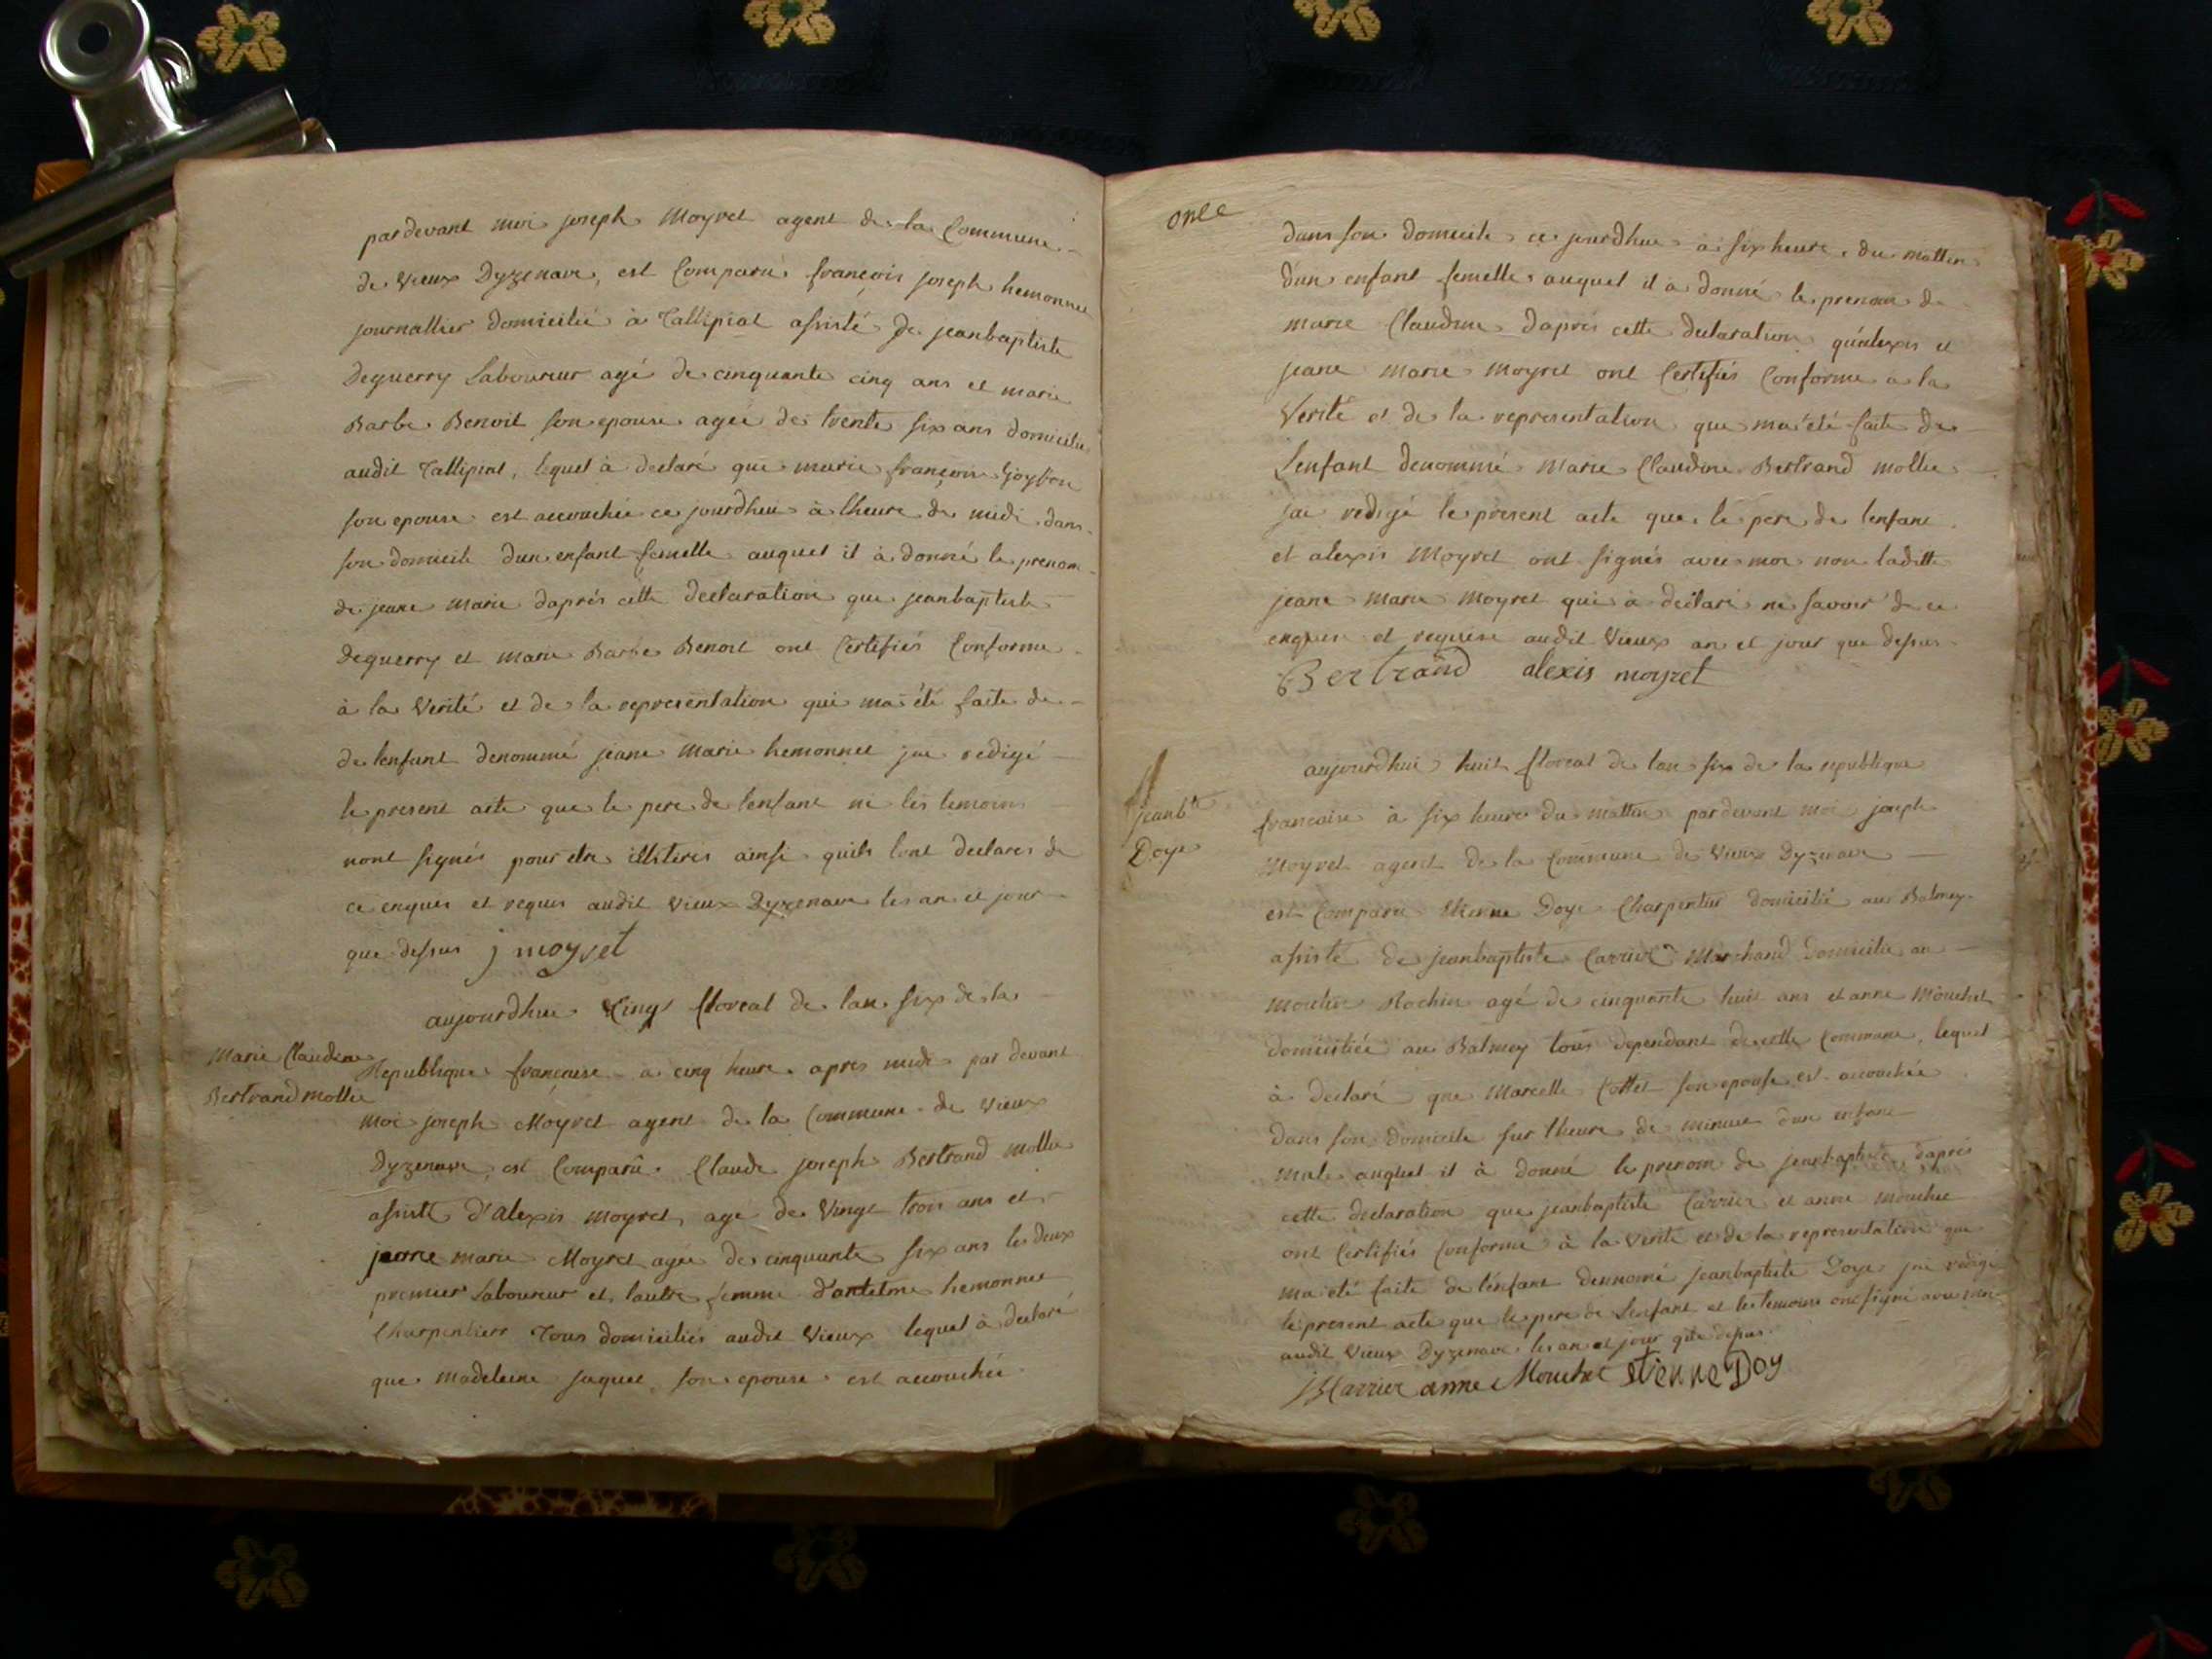 pardevant moi joseph Moyret agent de la Commune
de Vieux Dyzenave, est Comparu françois joseph hemonnet
journallier domicilié à Tallipiat assisté de jeanbaptiste
Deguerry Laboureur agé de cinquante cinq ans et marie
Barbe Benoit son epouse agée de trente six ans domicilie
audit Tallipiat, lequel à declaré que marie françoise
son epouse est accouchée ce jourdhui à lheure de midi dans
son domicile dun enfant femelle auquel il à donné le prenom
de jeane Marie daprés cette declaration que jeanbaptiste
deguerry et Marie Barbe Benoit ont Certifiés Conforme
à la Verité et de la representation qui ma été faite de
de lenfant denommé jeane Marie hemonnet jai redigé
le present acte que le pere de lenfant ni les temoins
nont signés pour etre illiterés ainsi quils lont declarés de
ce enquis et requis audit Vieux Dyzenave les an et jour
que dessus j moyret
aujourdhui Cinq floreal de lan six de la
Marie Claudine
Bertrand mollie
Republique française à cinq heure apres midi par devant
moi joseph Moyret agent de la Commune de Vieux
Dyzenave est Comparû Claude joseph Bertrand mollie
assisté d'alexis moyret agé de Vingt trois ans et
jeanne marie Moyret agée de cinquante six ans les deux
premier Laboureur et lautre femme d'antelme hemonnet
Charpentier Tous domiciliés audit Vieux lequel à declaré
que madeleine jaquet son epouse est accouchée
onze
dans son domicile ce jourdhui à six heure du mattin
dun enfant femelle auquel il a donné le prenom de
marie Claudine daprés cette declaration qu'alexis et
jeane marie moyret ont Certifiés Conforme à la
Verité et de la representation que ma été faite de
Lenfant denommé Marie Claudine Bertrand mollie
jai redigé le present acte que le pere de lenfant
et alexis Moyret ont signés avec moi non ladite
jeane marie moyret qui à declaré ne savoir de ce
enquise et requise audit Vieux an et jour que dessus
Bertrand alexis moyret
jeanbte
Doye
aujourdhui huit floreal de lan six de la republique
francaise à six heure du mattin pardevant moi joseph
Moyret agent de la Commune de Vieux Dyzenave
est Comparu Etienne Doye Charpentier domicilié au Balmey
assisté de jeanbaptiste Carrier Marchand Domicilié au
moulin Rochin agé de cinquante huit ans et anne Mouchet
domiciliée au Balmey tous dependant de cette Commune, lequel
à declaré que Marcelle Cottet son epouse est accouchée
dans son domicile sur lheure de minuit dun enfant
male auquel il à donné le prenom de jeanbaptiste daprés
cette declaration que jeanbaptiste Carrier et anne mouchet
ont Certifiés Conforme à la Verité et de la representation que
ma été faite de lenfant denomé jeanbaptiste Doye jai redigé
le present acte que le pere de Lenfant et les temoins ont signé avec moi
audit Vieux Dyzenave les an et jour que dessus
JBCarrier anne Mouchet Etienne Doy